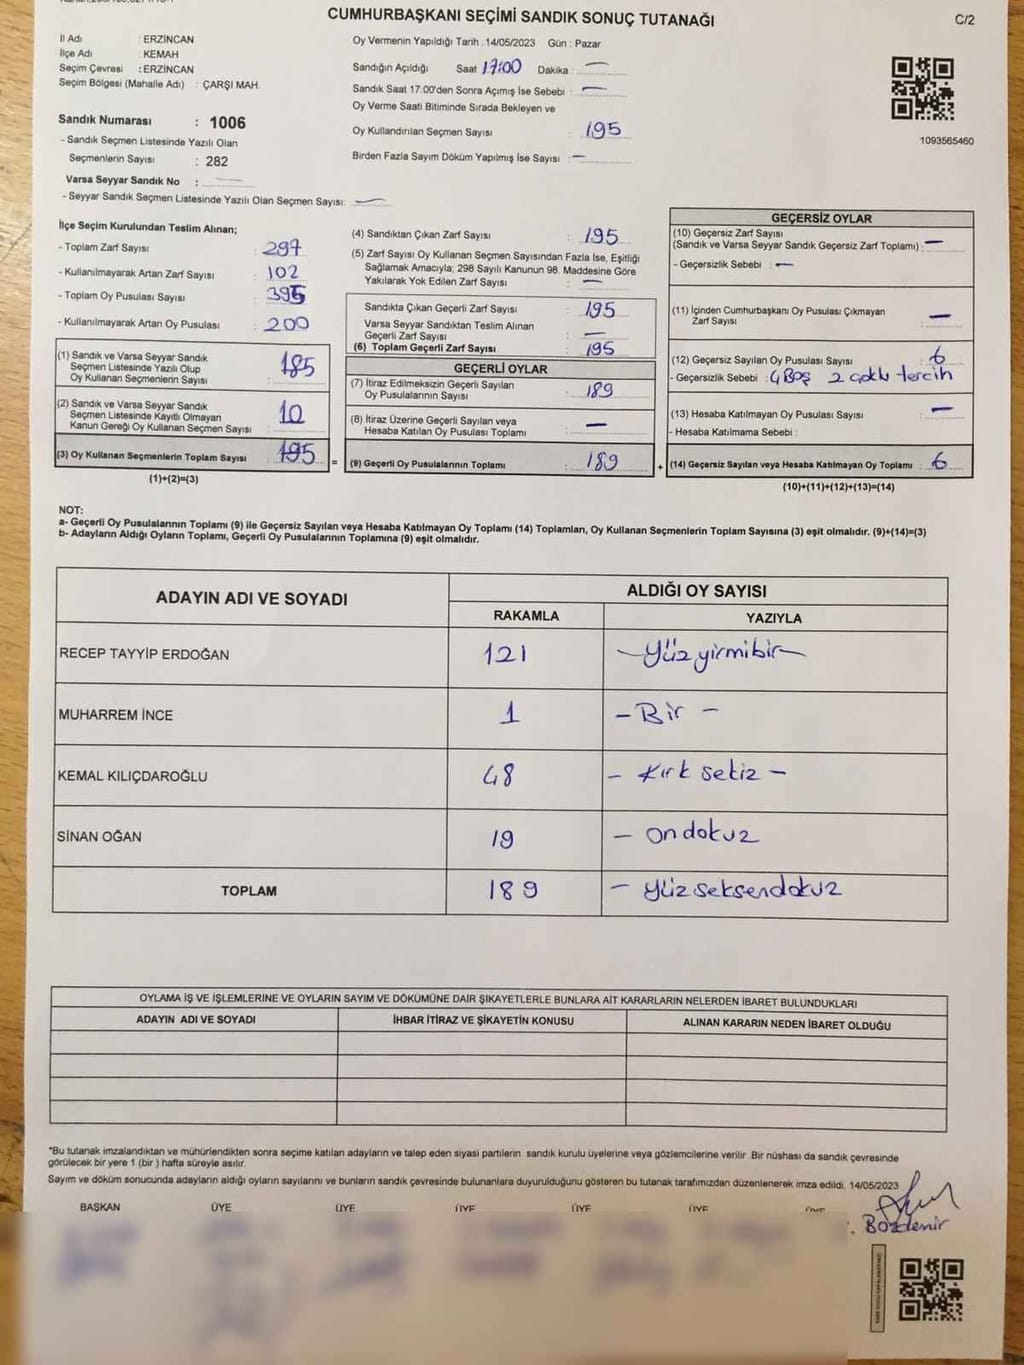 CUMHURBAŞKANI SEÇİMİ SANDIK SONUÇ TUTANAĞI
C/2
İl Adı : ERZİNCAN
İlçe Adı : KEMAH
Seçim Çevresi : ERZİNCAN
Seçim Bölgesi (Mahalle Adı) : ÇARŞI MAH.
Sandık Numarası : 1006
- Sandık Seçmen Listesinde Yazılı Olan
Seçmenlerin Sayısı : 282
Varsa Seyyar Sandık No : —
- Seyyar Sandık Seçmen Listesinde Yazılı Olan Seçmen Sayısı: —
Oy Vermenin Yapıldığı Tarih : 14/05/2023 Gün : Pazar
Sandığın Açıldığı Saat 17:00 Dakika : —
Sandık Saat 17.00'den Sonra Açımış İse Sebebi : —
Oy Verme Saati Bitiminde Sırada Bekleyen ve
Oy Kullandırılan Seçmen Sayısı : 195
Birden Fazla Sayım Döküm Yapılmış İse Sayısı : —
1093565460
İlçe Seçim Kurulundan Teslim Alınan;
- Toplam Zarf Sayısı : 297
- Kullanılmayarak Artan Zarf Sayısı : 102
- Toplam Oy Pusulası Sayısı : 395
- Kullanılmayarak Artan Oy Pusulası : 200
(1) Sandık ve Varsa Seyyar Sandık
Seçmen Listesinde Yazılı Olup
Oy Kullanan Seçmenlerin Sayısı : 185
(2) Sandık ve Varsa Seyyar Sandık
Seçmen Listesinde Kayıtlı Olmayan
Kanun Gereği Oy Kullanan Seçmen Sayısı : 10
(3) Oy Kullanan Seçmenlerin Toplam Sayısı : 195
(1)+(2)=(3)
(4) Sandıktan Çıkan Zarf Sayısı : 195
(5) Zarf Sayısı Oy Kullanan Seçmen Sayısından Fazla İse, Eşitliği
Sağlamak Amacıyla; 298 Sayılı Kanunun 98. Maddesine Göre
Yakılarak Yok Edilen Zarf Sayısı : —
Sandıkta Çıkan Geçerli Zarf Sayısı : 195
Varsa Seyyar Sandıktan Teslim Alınan
Geçerli Zarf Sayısı : —
(6) Toplam Geçerli Zarf Sayısı : 195
GEÇERLİ OYLAR
(7) İtiraz Edilmeksizin Geçerli Sayılan
Oy Pusulalarının Sayısı : 189
(8) İtiraz Üzerine Geçerli Sayılan veya
Hesaba Katılan Oy Pusulası Toplamı : —
= (9) Geçerli Oy Pusulalarının Toplamı : 189
GEÇERSİZ OYLAR
(10) Geçersiz Zarf Sayısı
(Sandık ve Varsa Seyyar Sandık Geçersiz Zarf Toplamı) : —
- Geçersizlik Sebebi : —
(11) İçinden Cumhurbaşkanı Oy Pusulası Çıkmayan
Zarf Sayısı : —
(12) Geçersiz Sayılan Oy Pusulası Sayısı : 6
- Geçersizlik Sebebi : 4 Boş 2 çoklu tercih
(13) Hesaba Katılmayan Oy Pusulası Sayısı : —
- Hesaba Katılmama Sebebi :
+ (14) Geçersiz Sayılan veya Hesaba Katılmayan Oy Toplamı : 6
(10)+(11)+(12)+(13)=(14)
NOT:
a- Geçerli Oy Pusulalarının Toplamı (9) ile Geçersiz Sayılan veya Hesaba Katılmayan Oy Toplamı (14) Toplamları, Oy Kullanan Seçmenlerin Toplam Sayısına (3) eşit olmalıdır. (9)+(14)=(3)
b- Adayların Aldığı Oyların Toplamı, Geçerli Oy Pusulalarının Toplamına (9) eşit olmalıdır.
ADAYIN ADI VE SOYADI ALDIĞI OY SAYISI
RAKAMLA YAZIYLA
RECEP TAYYİP ERDOĞAN 121 —Yüz yirmibir—
MUHARREM İNCE 1 - Bir -
KEMAL KILIÇDAROĞLU 48 - Kırk sekiz -
SİNAN OĞAN 19 - on dokuz
TOPLAM 189 - Yüz seksendokuz
OYLAMA İŞ VE İŞLEMLERİNE VE OYLARIN SAYIM VE DÖKÜMÜNE DAİR ŞİKAYETLERLE BUNLARA AİT KARARLARIN NELERDEN İBARET BULUNDUKLARI
ADAYIN ADI VE SOYADI İHBAR İTİRAZ VE ŞİKAYETİN KONUSU ALINAN KARARIN NEDEN İBARET OLDUĞU
*Bu tutanak imzalandıktan ve mühürlendikten sonra seçime katılan adayların ve talep eden siyasi partilerin sandık kurulu üyelerine veya gözlemcilerine verilir. Bir nüshası da sandık çevresinde
görülecek bir yere 1 (bir) hafta süreyle asılır.
Sayım ve döküm sonucunda adayların aldığı oyların sayılarını ve bunların sandık çevresinde bulunanlara duyurulduğunu gösteren bu tutanak tarafımızdan düzenlenerek imza edildi. 14/05/2023
BAŞKAN ÜYE ÜYE ÜYE ÜYE ÜYE ÜYE
Bozdemir